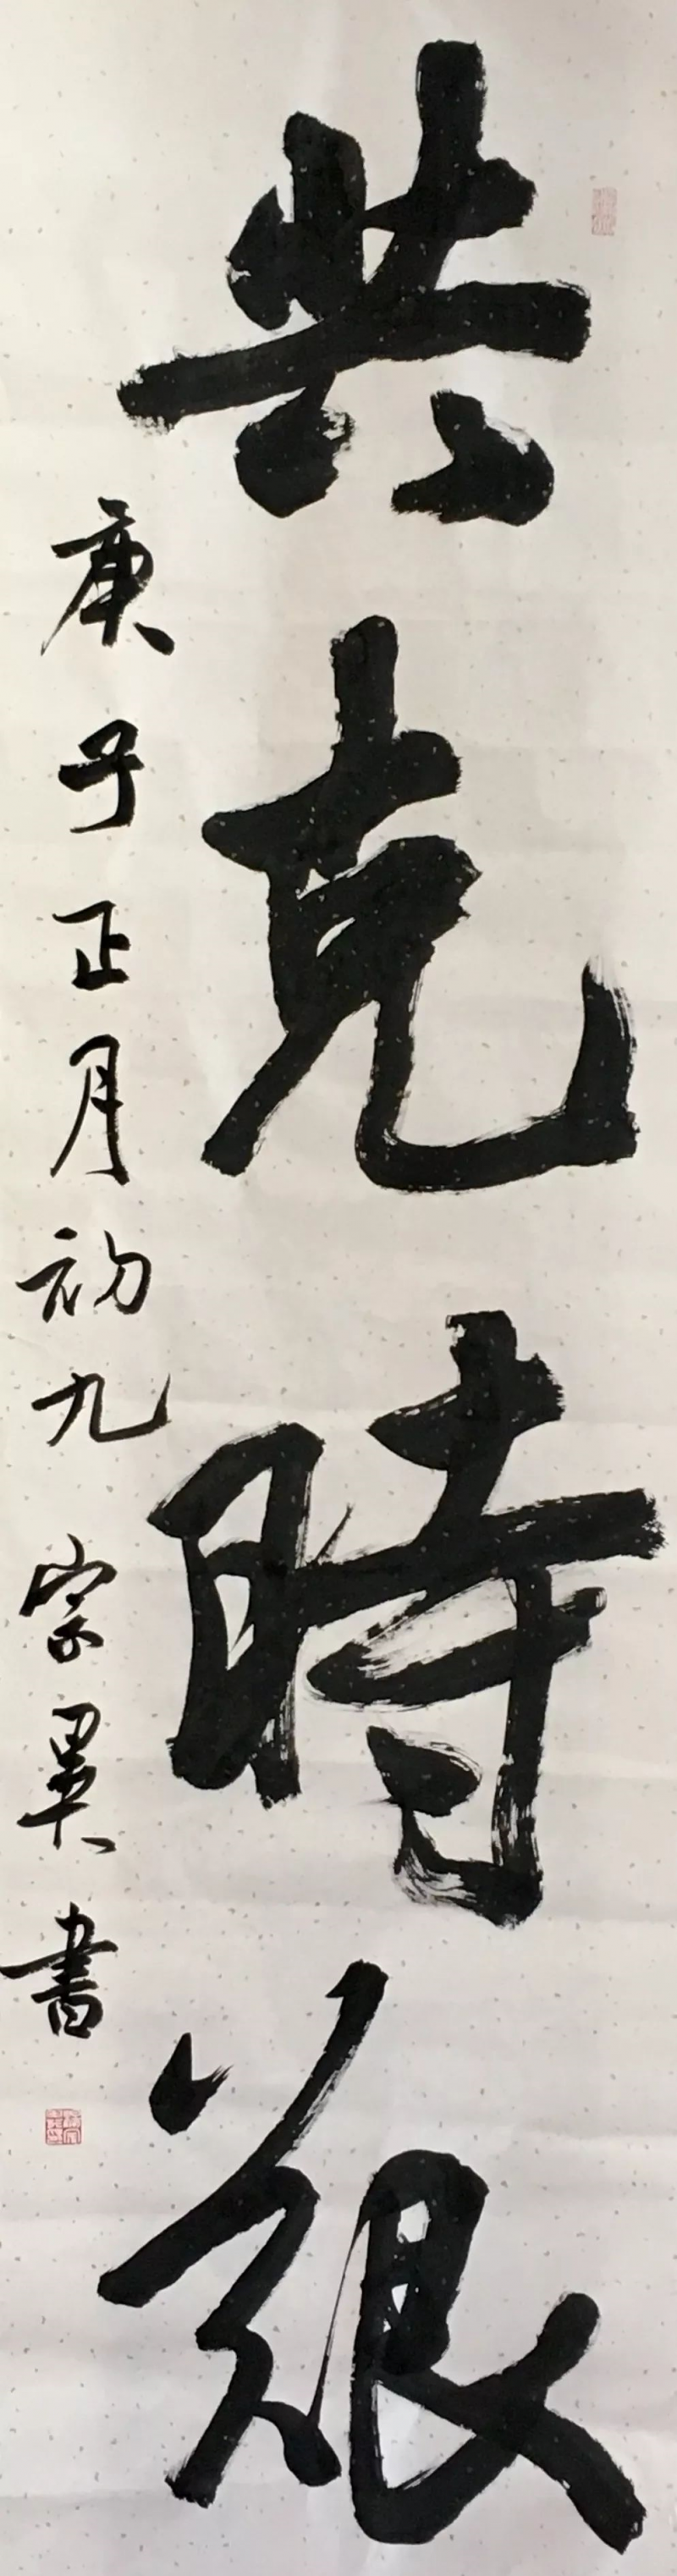 共克時艱
庚子正月初九 宗昊書